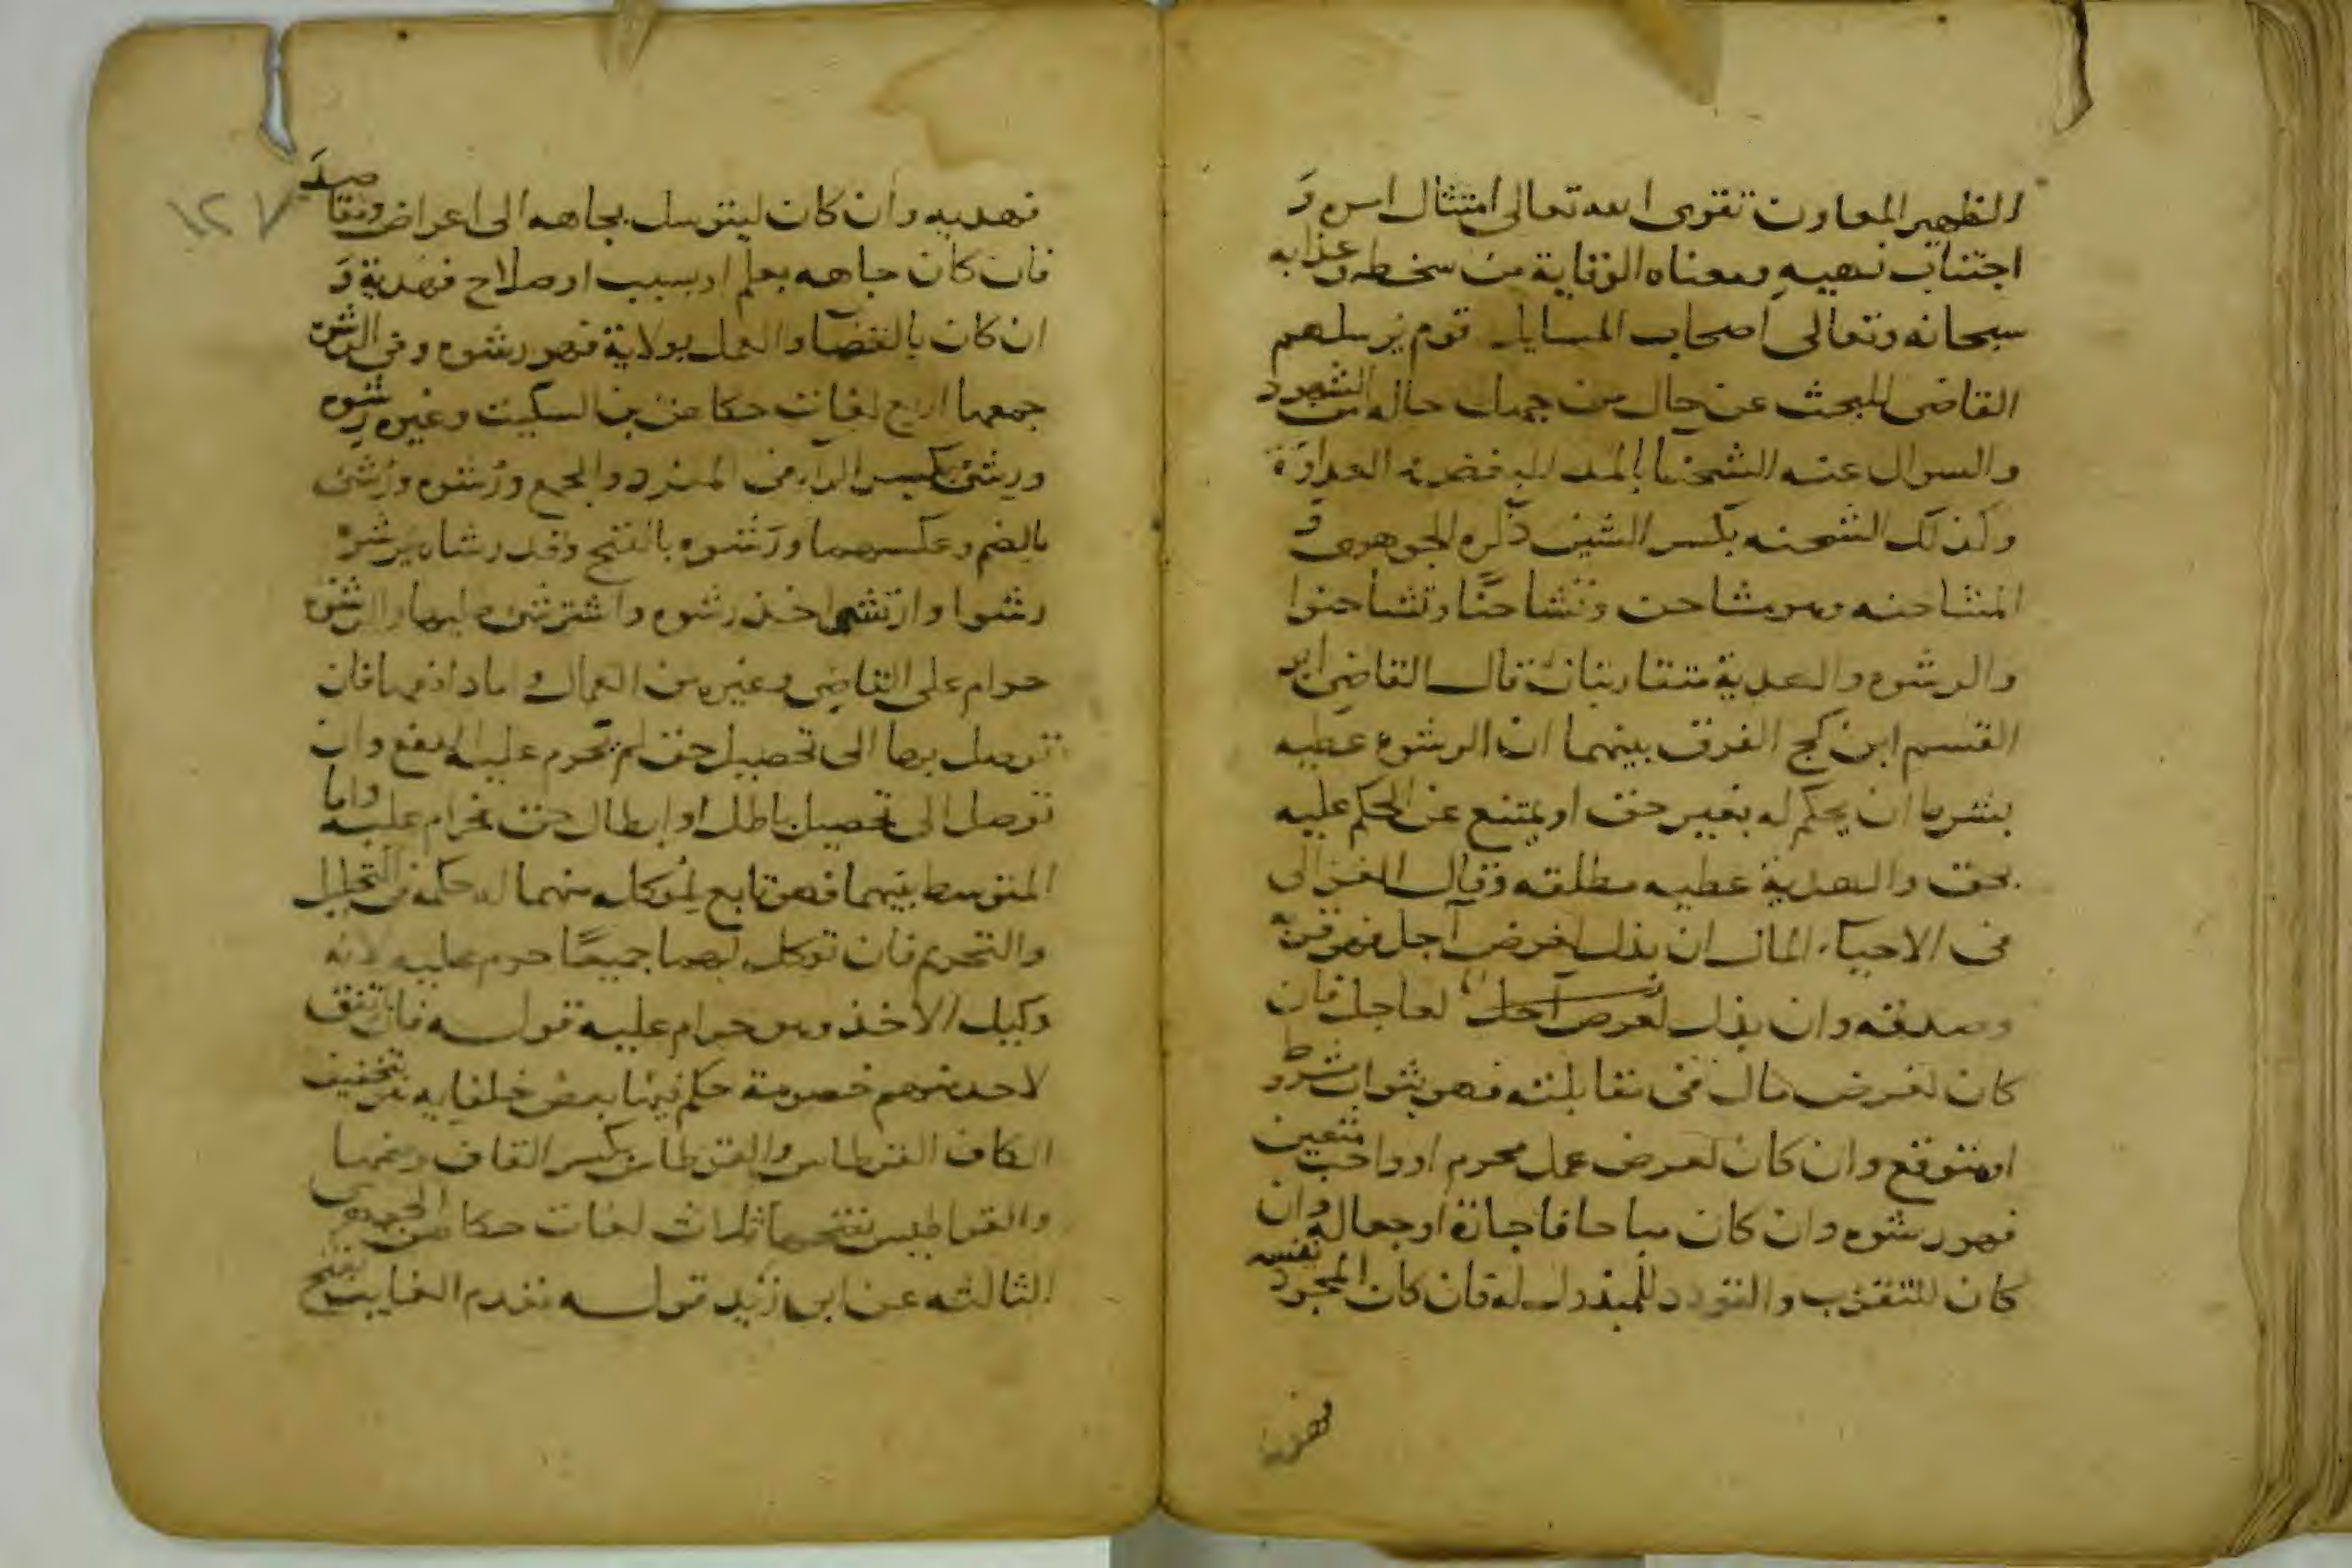 الظهير المعاون تقوى الله تعالى امتثال امره و
اجتناب نهيه ومعناه الوقاية من سخطه وعذابه
سبحانه وتعالى اصحاب المسايل قوم يرسلهم
القاضى للبحث عن حال من جهل حاله من الشهود
والسوال عنه الشحنا بالمد العداوة
وكذلك الشحنه بكسر الشين ذكره الجوهرى و
المشاحنه وهو مشاحن وتشاحنا وتشاحنوا
والرشوه والهدية متقاربتان قال القاضى ابو
القسم ابن كج الفرق بينهما ان الرشوه عطيه
بشرط ان يحكم له بغير حق او يمتنع عن الحكم عليه
بحق والهدية عطيه مطلقه وقال الغزالى
فى الاحياء المال ان بذل لغرض آجل فهو قربة
وصدقه وان بذل لغرض آجل لعاجل فان
كان لغرض مال فى مقابلته فهو ثواب شرط
او متوقع وان كان لغرض عمل محرم او واجب متعين
فهو رشوه وان كان مباحا فاجارة او جعاله وان
كان للتقرب والتودد للمبذول له فان كان لمجرد نفسه
فهديه
فهديه وان كان ليتوسل بجاهه الى اعراض ومقاصد
١٢٧
فان كان جاهه بعلم او بسبب او صلاح فهدية و
ان كان بالقضا والعمل بولاية فهو رشوه وفى الرشوه
جمعها اربع لغات حكاهن بن السكيت وغيره رشوه
ورشى بكسر الراء فى المفرد والجمع ورشوه ورشى
بالضم وعكسهما ورشوه بالفتح وقد رشاه يرشوه
رشوا وارتشى اخذ رشوه واسترشى طلبها والرشوه
حرام على القاضى وغيره من العمال واما دافعها فان
توصل بها الى تحصيل حق لم تحرم عليه الدفع وان
توصل الى تحصيل باطل او ابطال حق فحرام عليه واما
المتوسط بينهما فهو تابع لموكله منهما له حكمه فى التحليل
والتحريم فان توكل لهما جميعا حرم عليه لانه
وكيل الاخذ وهو حرام عليه قوله فان اتفق
لاحد منهم خصومة حكم فيها بعض خلفايه بتخفيف
الكاف القرطاس والقرطاس بكسر القاف وضمها
والقراطيس ثلاث لغات حكاهن الجوهرى
الثالثه عن ابى زيد قوله تقدم الغايب بفتح